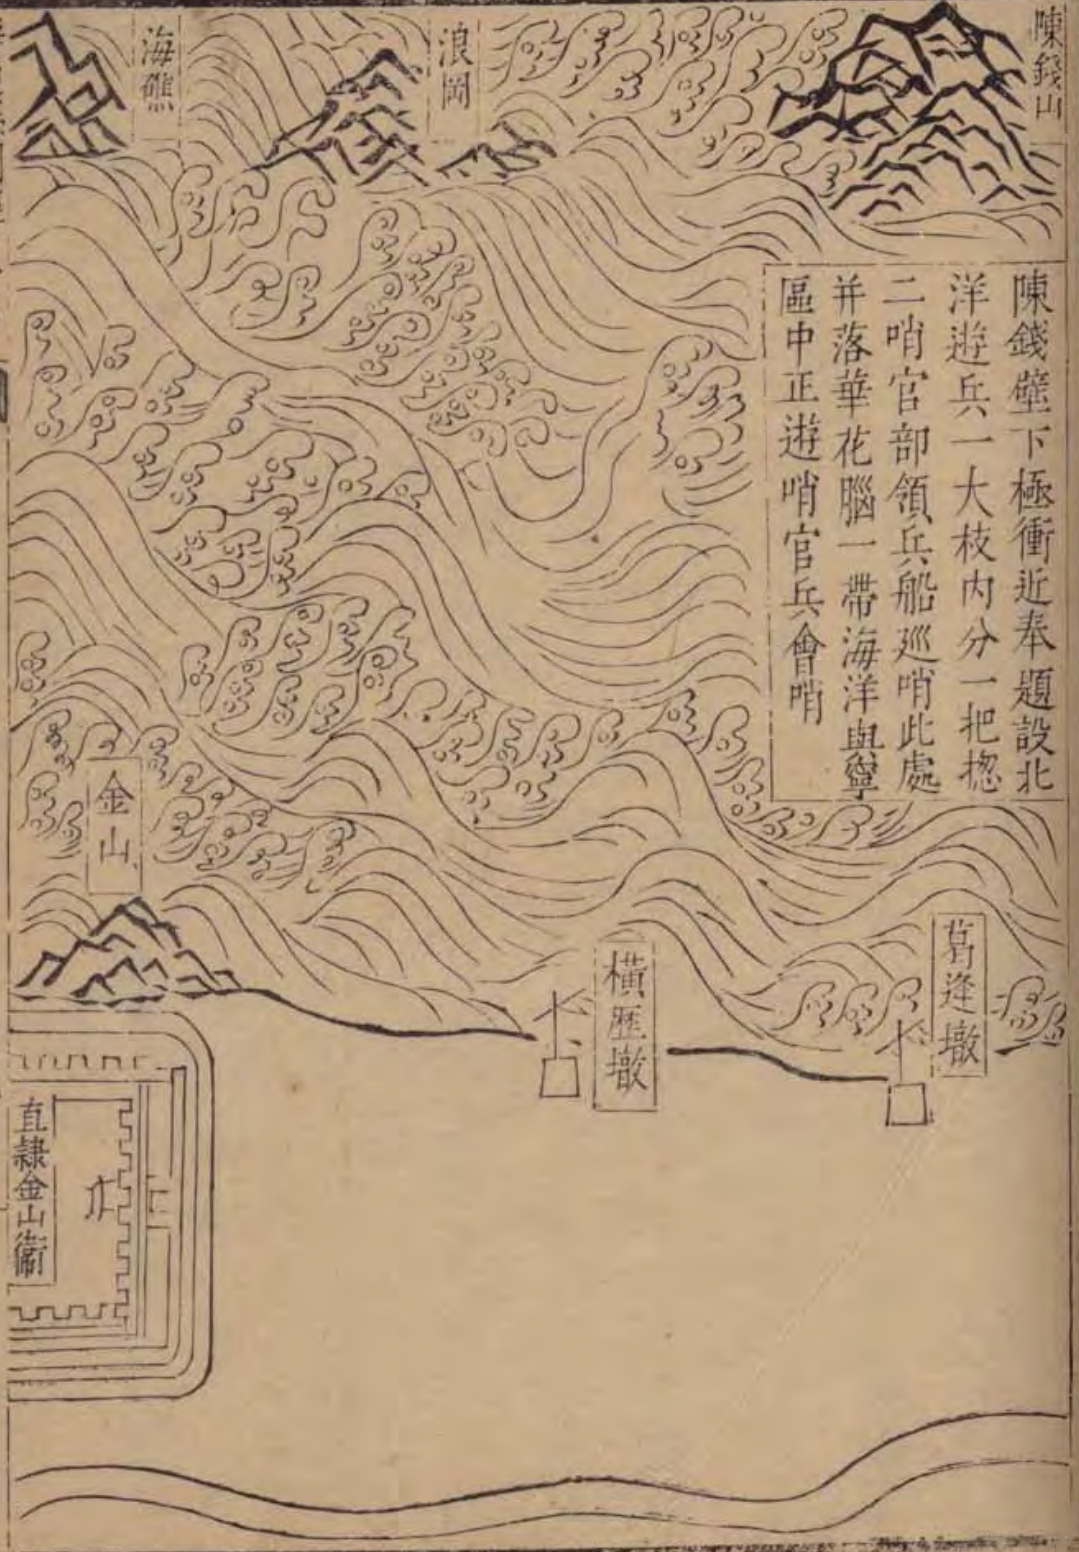 陳錢山
浪岡
海礁
陳錢壁下極衝近奉題設北
洋遊兵一大枝内分一把揔
二哨官部領兵船廵哨此處
并落華花腦一帶海洋與寧
區中正遊哨官兵會哨
葛逢墩
橫歴墩
金山
直隸金山衛